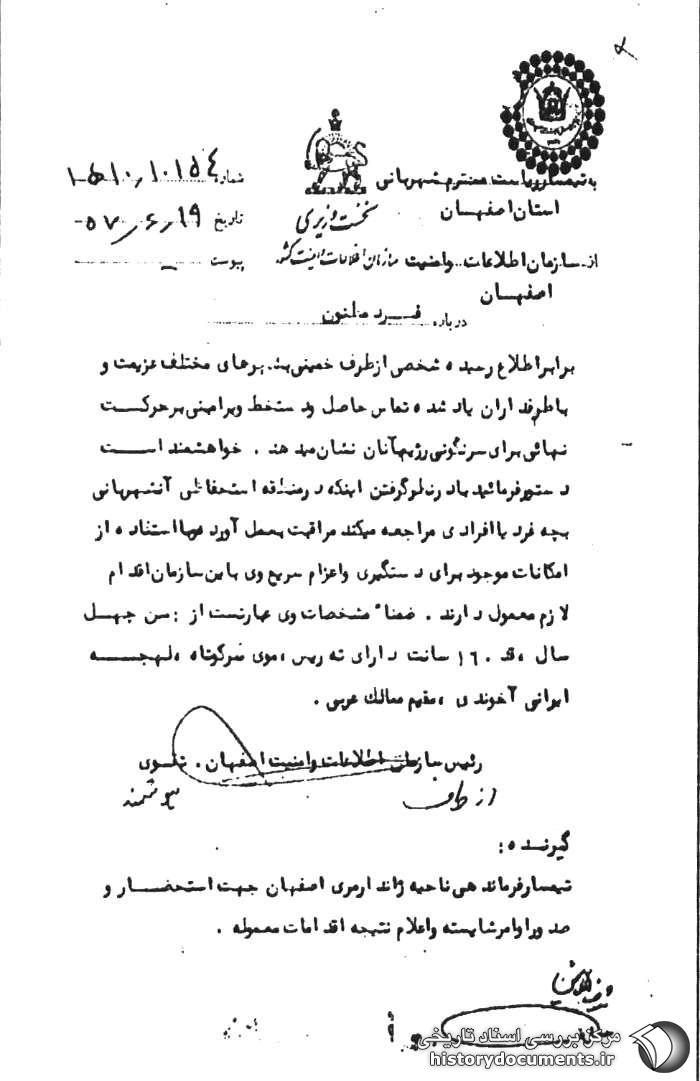 به تیمسار ریاست محترم شهربانی
استان اصفهان
شماره ۱۰۱۵۴/۱۵۱۰
نخست وزیری
تاریخ ۵۷/۶/۱۹
از سازمان اطلاعات و امنیت
سازمان اطلاعات و امنیت کشور
پیوست
اصفهان
درباره فرد مظنون
برابر اطلاع رسیده شخصی از طرف خمینی بشهرهای مختلف عزیمت و
با طرفداران یاد شده تماس حاصل و دستخط ویرا مبنی بر حرکت
نهائی برای سرنگونی رژیم آنان نشان میدهد . خواهشمند است
دستور فرمائید با در نظر گرفتن اینکه در منطقه استحفاظی آنشهربانی
بچه فرد یا افرادی مراجعه میکند مراقبت بعمل آورد و با استفاده از
امکانات موجود برای دستگیری و اعزام سریع وی باین سازمان اقدام
لازم معمول دارند . ضمناً مشخصات وی عبارتست از : سن چهل
سال ، قد ۱۶۰ سانت دارای ته ریش ، موی سر کوتاه ، لهجه
ایرانی آخوندی ، مقیم ممالک عربی .
رئیس سازمان اطلاعات و امنیت اصفهان . تقوی
از طرف هوشمند
گیرنده :
تیمسار فرماندهی ناحیه ژاندارمری اصفهان جهت استحضار و
صدور اوامر شایسته و اعلام نتیجه اقدامات معموله .
مرکز بررسی اسناد تاریخی
historydocuments.ir